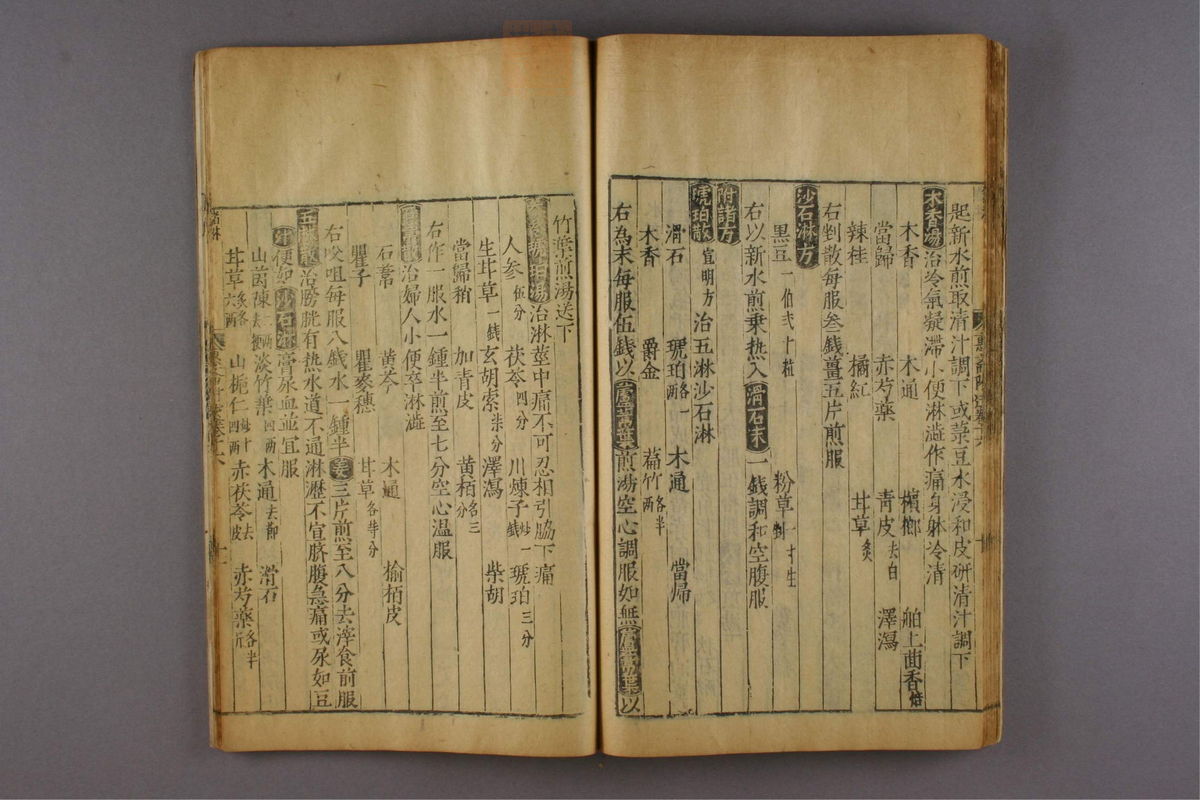 起新水煎取清汁調下或菉豆水浸和皮研清汁調下
木香湯治冷氣凝滯小便淋澁作痛身躰冷清
木香 木通 檳榔 舶上茴香焙
當歸 赤芍藥 青皮去白 澤瀉
辣桂 橘紅 甘草炙
右剉散每服叁錢薑五片煎服
沙石淋方
黒豆一伯弍十粒 粉草 寸生
右以新水煎乗热入滑石末一錢調和空腹服
附諸方
琥珀散宣明方治五淋沙石淋
滑石 琥珀各一两 木通 當歸
木香 爵金 萹竹各半两
右為末每服伍錢以 葉煎湯空心調服如無 葉以
竹葉煎湯送下
湯治淋莖中痛不可忍相引脇下痛
人参伍分 茯苓四分 川煉子一錢 琥珀三分
生甘草一錢 玄胡索柒分 澤瀉 柴胡
當歸稍 加青皮 黄栢各三分
右作一服水一鍾半煎至七分空心温服
治婦人小便卒淋澁
石葦 黄芩 木通 榆栢皮
瞿子 瞿麥穗 甘草各等分
右㕮咀每服八錢水一鍾半姜三片煎至八分去滓食前服
五淋散治膀胱有热水道不通淋瀝不宣脐腹急痛或尿如豆
汁便如沙石淋膏尿血並宜服
山茵陳去梗二两 淡竹葉四两 木通去節 滑石
甘草炙各六两 山梔仁四十两 赤茯苓去皮 赤芍藥各半斤